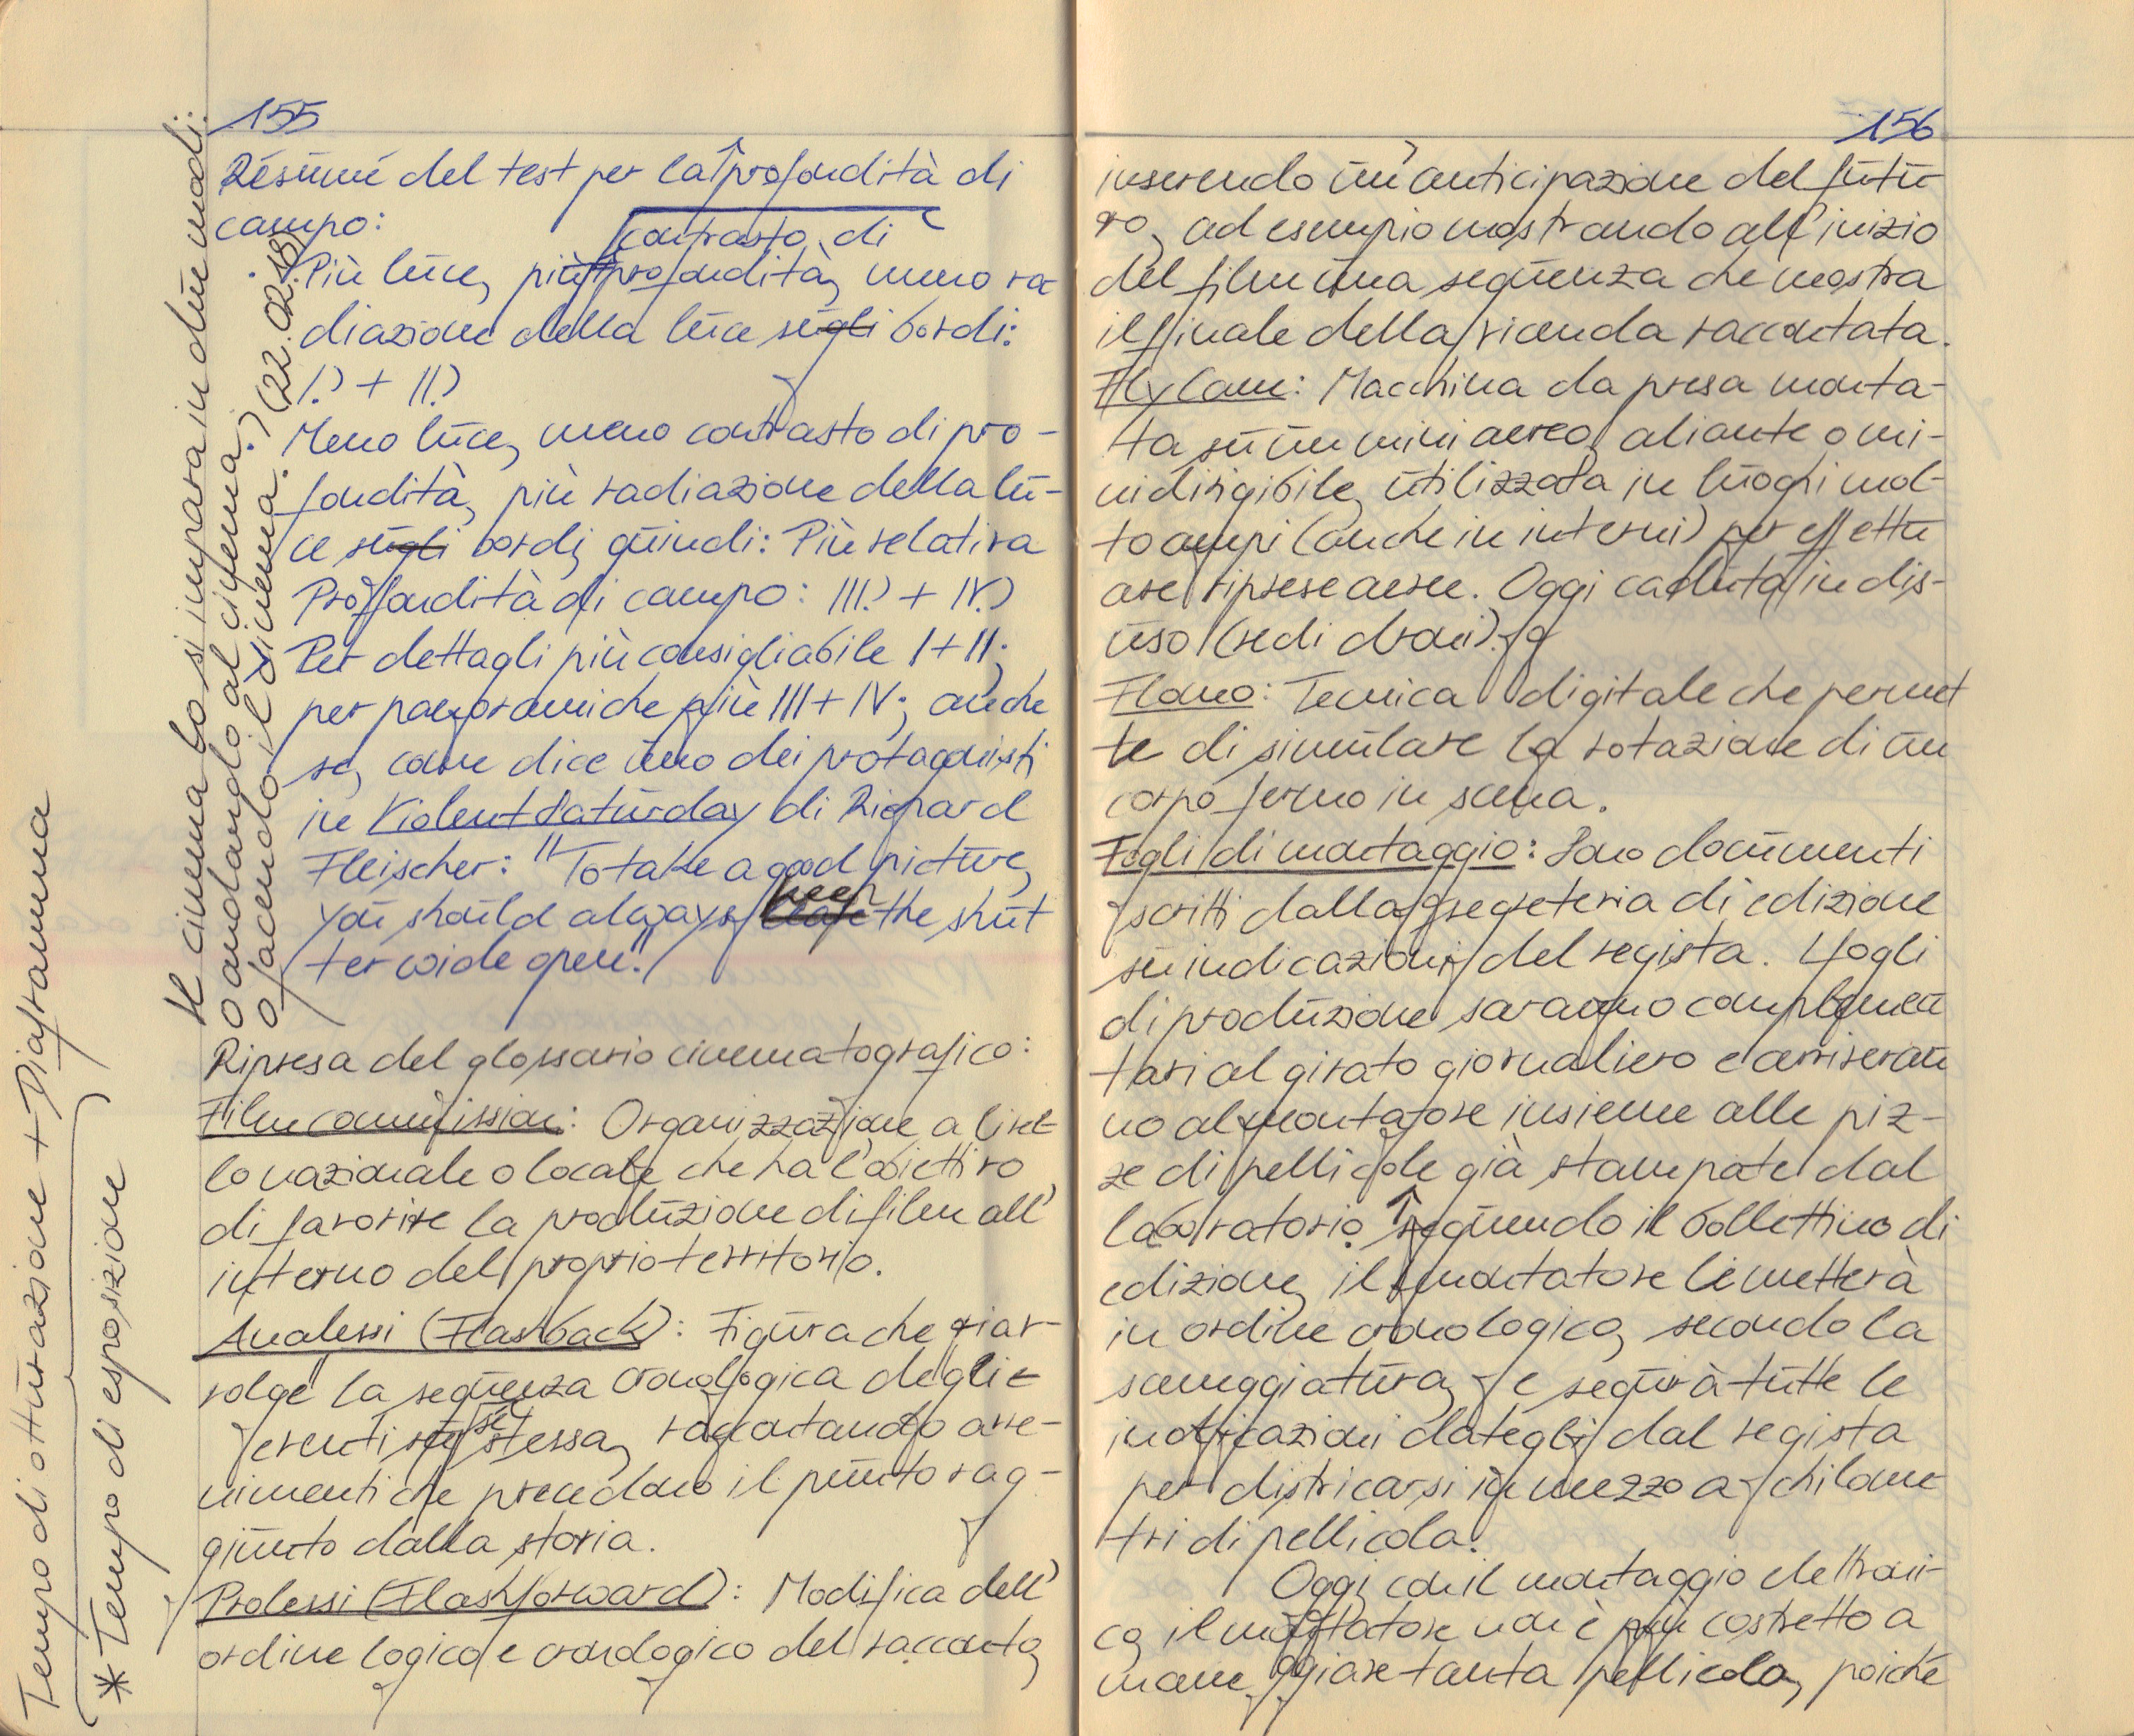 155
Résumé del test per la profondità di
campo:
contrasto di
Più luce, più profondità, meno ra
diazione della luce sugli bordi:
I.) + II.)
Meno luce, meno contrasto di pro-
fondità, più radiazione della lu-
ce sugli bordi, quindi: Più relativa
Profondità di campo: III.) + IV.)
Per dettagli più consigliabile I + II;
per panoramiche più III + IV; anche
se, come dice uno dei protagonisti
in Violent Saturday di Richard
Fleischer: "To take a good picture,
you should always keep the shut
ter wide open."
Ripresa del glossario cinematografico:
Film commission: Organizzazione a livel
lo nazionale o locale che ha l'obiettivo
di favorire la produzione di film all'
interno del proprio territorio.
Analessi (Flashback): Figura che riav-
volge la sequenza cronologica degli e
venti in sé stessa, raccontando avve-
nimenti che precedono il punto rag-
giunto dalla storia.
Prolessi (Flashforward): Modifica dell'
ordine logico e cronologico del racconto,
Il cinema lo si impara in due modi:
o andando al cinema,
o facendo il cinema. (22.02.18)
Tempo di otturazione + Diaframma
* Tempo di esposizione
156
inserendo un'anticipazione del futu
ro, ad esempio mostrando all'inizio
del film una sequenza che mostra
il finale della vicenda raccontata.
Flycam: Macchina da presa monta-
ta su un mini aereo, aliante o mi-
nidirigibile, utilizzata in luoghi mol-
to ampi (anche in interni) per effettu
are riprese aeree. Oggi caduta in dis-
uso (vedi droni).
Flomo: Tecnica digitale che permet
te di simulare la rotazione di un
corpo fermo in scena.
Fogli di montaggio: Sono documenti
scritti dalla segreteria di edizione
su indicazioni del regista. I fogli
di produzione saranno complemen
tari al girato giornaliero e arriveran
no al montatore insieme alle piz-
ze di pellicole già stampate dal
laboratorio. Seguendo il bollettino di
edizione, il montatore le metterà
in ordine cronologico, secondo la
sceneggiatura, e seguirà tutte le
indicazioni dategli dal regista
per districarsi in mezzo a chilome
tri di pellicola.
Oggi, con il montaggio elettroni-
co, il montatore non è più costretto a
maneggiare tanta pellicola, poiché